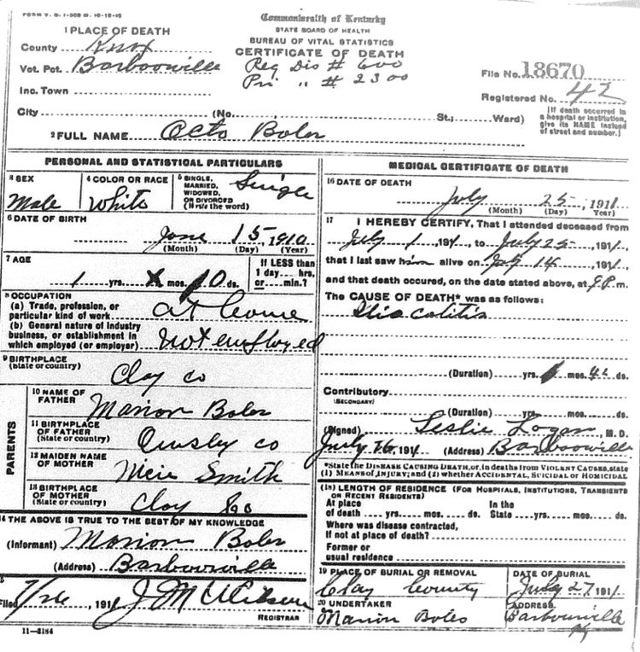 FORM V. S. 1-50M 10-18-10
Commonwealth of Kentucky
STATE BOARD OF HEALTH
BUREAU OF VITAL STATISTICS
CERTIFICATE OF DEATH
Reg Dis # 600
Pri " # 2300
1 PLACE OF DEATH
County Knox
Vot. Pct. Barboorville
Inc. Town
City (No. St.; Ward)
File No. 18670
Registered No. 42
[If death occurred in a hospital or institution, give its NAME instead of street and number.]
2 FULL NAME Octo Boler
PERSONAL AND STATISTICAL PARTICULARS
3 SEX Male
4 COLOR OR RACE White
5 SINGLE, MARRIED, WIDOWED, OR DIVORCED (Write the word) Single
6 DATE OF BIRTH June 15 1910
(Month) (Day) (Year)
7 AGE 1 yrs. X mos. 10 ds.
If LESS than 1 day... hrs. or... min.?
8 OCCUPATION
(a) Trade, profession, or particular kind of work at home
(b) General nature of industry business, or establishment in which employed (or employer) Not employed
9 BIRTHPLACE
(State or country) Clay co
PARENTS
10 NAME OF FATHER Marion Boler
11 BIRTHPLACE OF FATHER (State or country) Owsley co
12 MAIDEN NAME OF MOTHER Smith
13 BIRTHPLACE OF MOTHER (State or country) Clay co
14 THE ABOVE IS TRUE TO THE BEST OF MY KNOWLEDGE
(Informant) Marion Boler
(Address) Barboorville
Filed 7/26 1911 REGISTRAR
11-3184
MEDICAL CERTIFICATE OF DEATH
16 DATE OF DEATH July 25 1911
(Month) (Day) (Year)
17 I HEREBY CERTIFY, That I attended deceased from
July 1 1911, to July 25 1911,
that I last saw him alive on July 14 1911,
and that death occured, on the date stated above, at 8 P.m.
The CAUSE OF DEATH* was as follows:
Ilio colitis
(Duration) yrs. mos. ds.
Contributory
(SECONDARY)
(Duration) yrs. mos. ds.
(Signed) Leslie Logan, M.D.
July 26, 1911 (Address) Barboorville
*State the DISEASE CAUSING DEATH, or, in deaths from VIOLENT CAUSES, state (1) MEANS OF INJURY; and (2) whether ACCIDENTAL, SUICIDAL or HOMICIDAL
18 LENGTH OF RESIDENCE (FOR HOSPITALS, INSTITUTIONS, TRANSIENTS OR RECENT RESIDENTS)
At place of death yrs. mos. ds. In the State yrs. mos. ds.
Where was disease contracted, If not at place of death?
Former or usual residence
19 PLACE OF BURIAL OR REMOVAL Clay County
DATE OF BURIAL July 27 1911
20 UNDERTAKER Marion Boles
ADDRESS Barboorville Ky